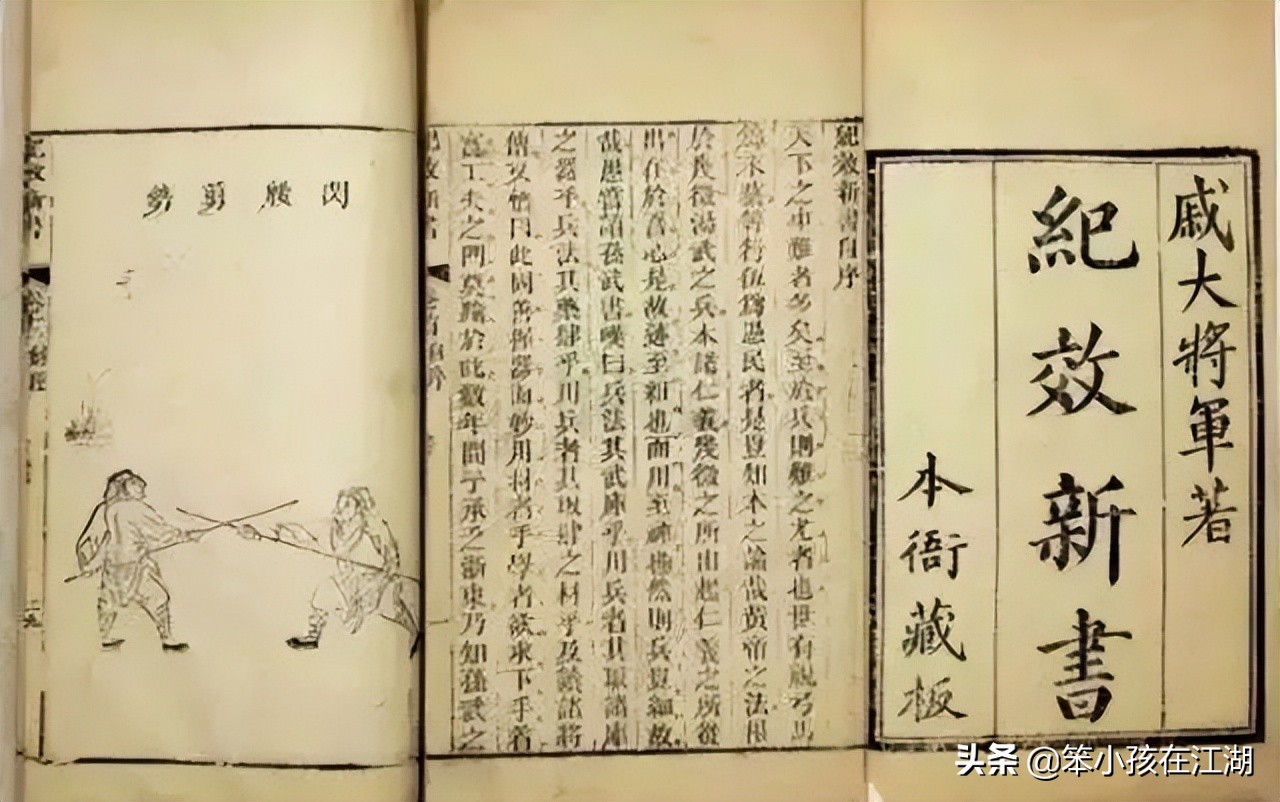 戚大將軍著
紀效新書
本衙藏板
紀效新書自序
天下之中難者多矣至於兵則難之尤者也世有視弓馬
末藝等行伍爲愚民者是豈知本之論哉黃帝之法限
於幾微湯武之兵本諸仁義幾微之所出起仁義之所從
出在於吾心是故迹至粗也而用至神也然則兵豈細故
哉愚嘗讀孫武書嘆曰兵法其武庫乎用兵者其取諸庫
之器乎兵法其藥肆乎用兵者其取肆之材乎及讀諸將
傳又悟曰此固善握器而妙用材者乎學者欲求下手著
實工夫之門莫踰於此數年間予承乏浙東乃知孫武之
紀效新書
閃腰剪勢
紀效新書
头条 @笨小孩在江湖